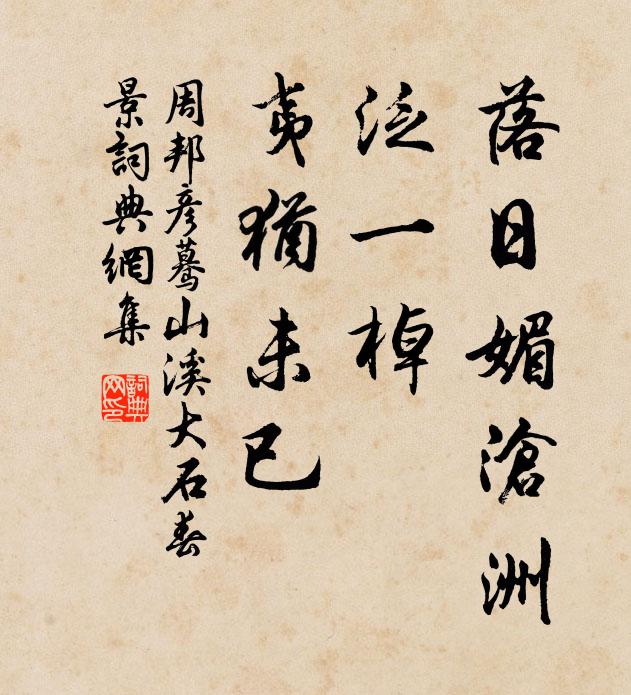 落日媚滄洲
泛一棹
夷猶未已
周邦彦驀山溪大石春
景詞典網集
詞典
网印